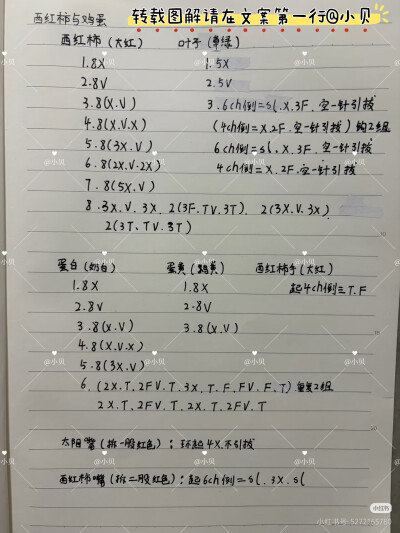 转载图解请在文案第一行@小贝
西红柿与鸡蛋
西红柿(大红) 叶子(草绿)
1.8X 1.5X
2.8V 2.5V
3.8(X.V) 3.6ch倒=sl.X.3F.空一针引拔
4.8(X.V.X) (4ch倒=X.2F.空一针引拔)钩2组
5.8(3X.V) 6ch倒=sl.X.3F.空一针引拔
6.8(2X.V.2X) 4ch倒=X.2F.空一针引拔
7.8(5X.V)
8.3X.V.3X.2(3F.TV.3T).2(3X.V.3X)
2(3T.TV.3T)
蛋白(奶白) 蛋黄(鹅黄) 西红柿手(大红)
1.8X 1.8X 起4ch倒=T.F
2.8V 2.8V
3.8(X.V) 3.8(X.V)
4.8(X.V.X)
5.8(3X.V)
6.(2X.T.2FV.T.3X.T.F.FV.F.T)重复2组
2X.T.2FV.T.2X.T.2FV.T
太阳嘴(拆一股红色):环起4X.不引拔
西红柿嘴(拆二股红色):起6ch倒=sl.3X.sl
@小贝
@小贝
@小贝
@小贝
@小贝
@小贝
@小贝
@小贝
@小贝
小红书